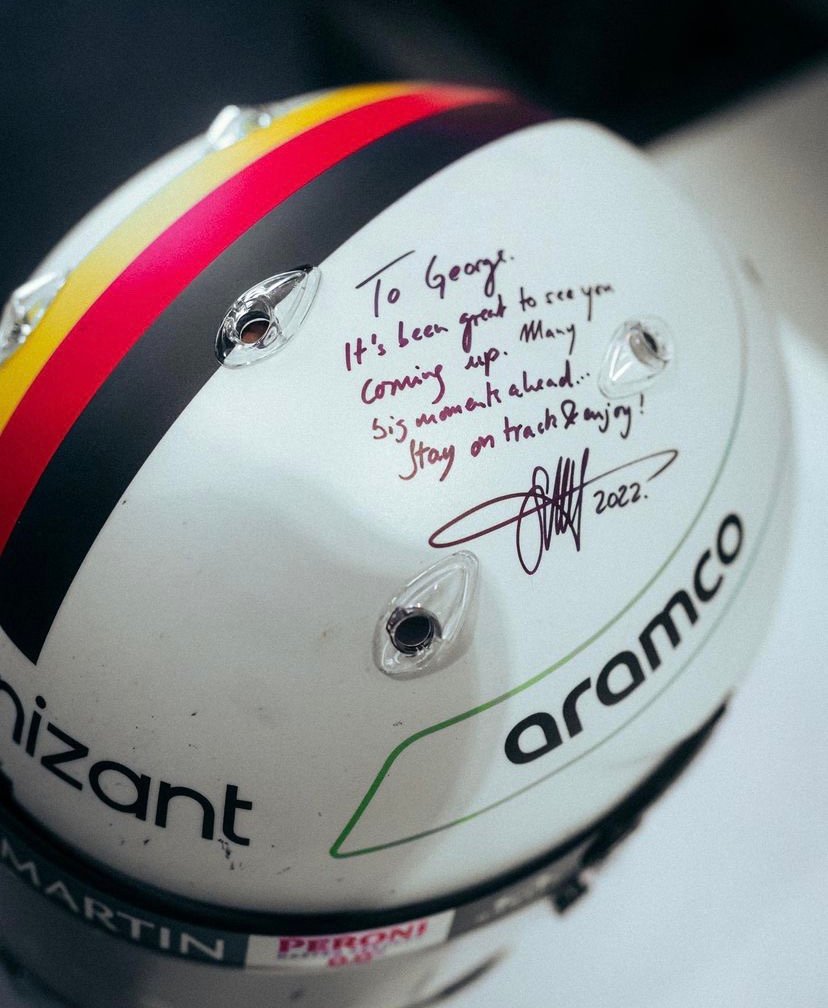 To George.
It's been great to see you
coming up. Many
big moments ahead...
Stay on track & enjoy!
2022.
aramco
nizant
MARTIN
PERONI
0.0